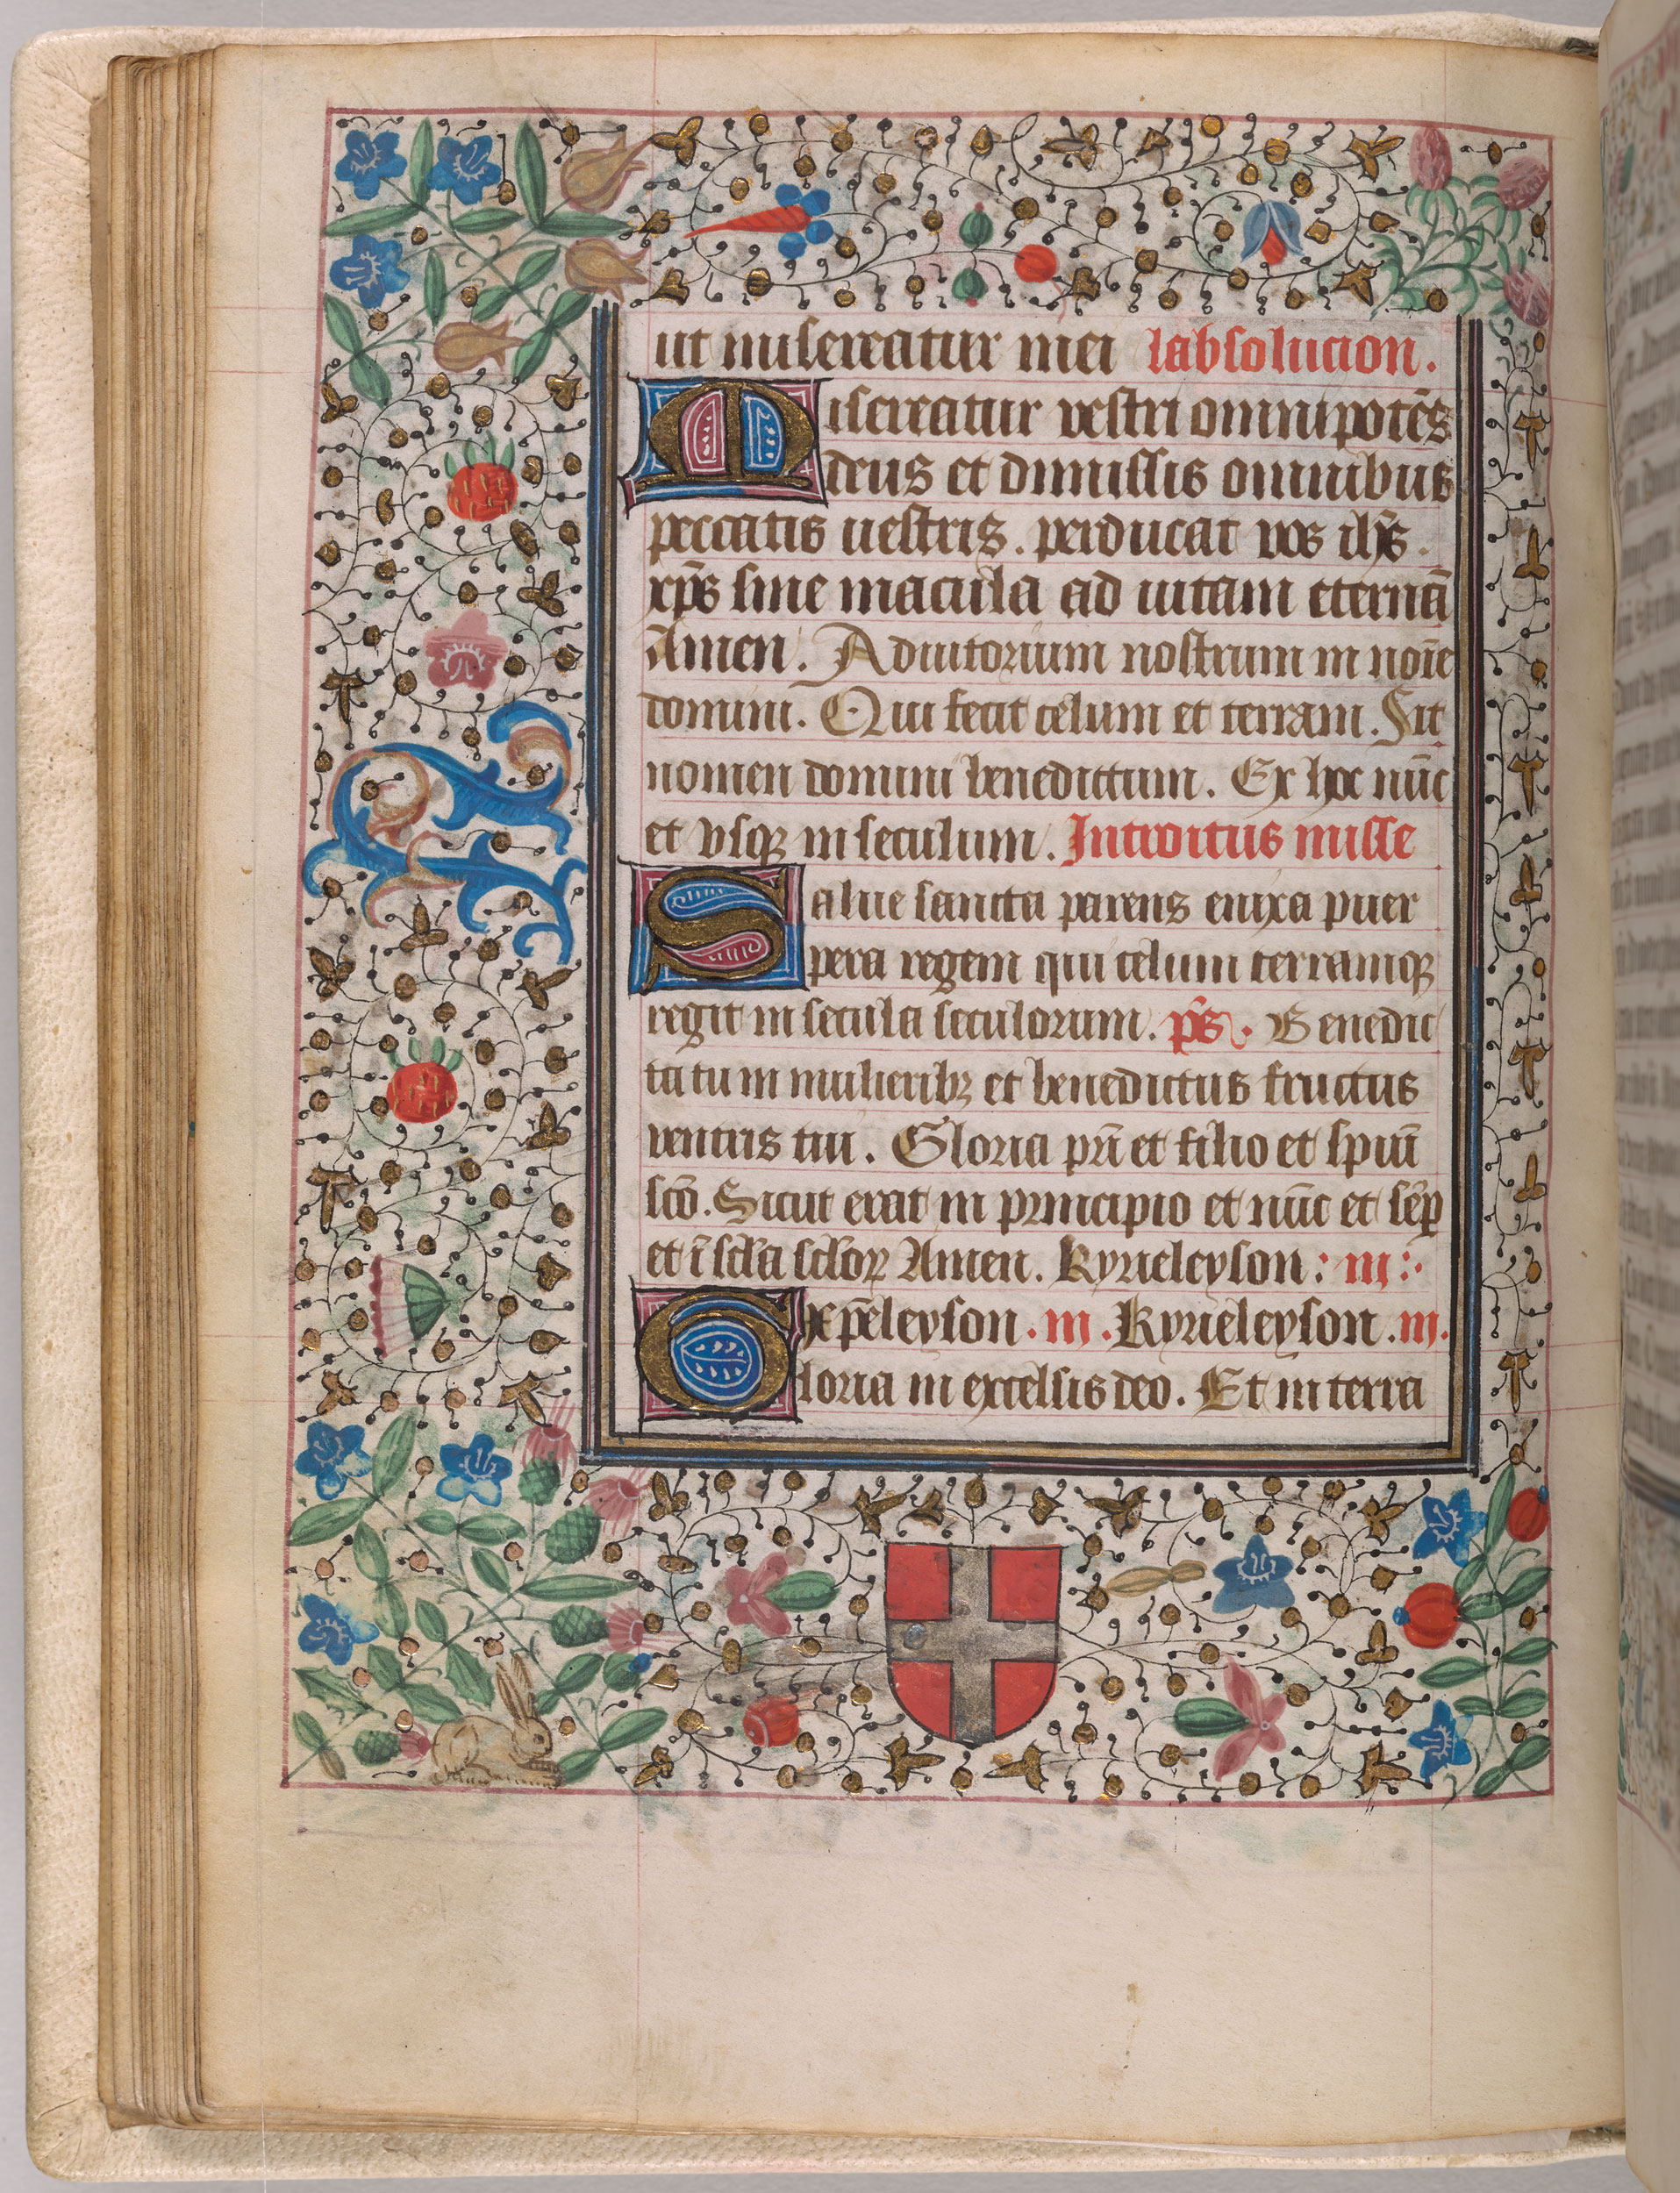 ut misereatur mei labsolucion.
Misereatur vestri omnipotẽs
deus et dimissis omnibus
peccatis uestris. perducat vos ih̃s.
xp̃s sine macula ad uitam eternã
Amen. Adiutorium nostrum in noĩe
domini. Qui fecit celum et terram. Sit
nomen domini benedictum. Ex hoc nũc
et vsqꝫ in seculum. Introitus misse
Salue sancta parens enixa puer
pera regem qui celum terramqꝫ
regit in secula seculorum. ps̃. Benedic
ta tu in mulieribꝫ et benedictus fructus
ventris tui. Gloria pr̃i et filio et spũi
sc̃o. Sicut erat in principio et nũc et sẽꝑ
et ĩ sc̃la sc̃loꝝ Amen. Kyrieleyson: iij:
Xp̃eleyson. iij. Kyrieleyson. iij.
Gloria in excelsis deo. Et in terra